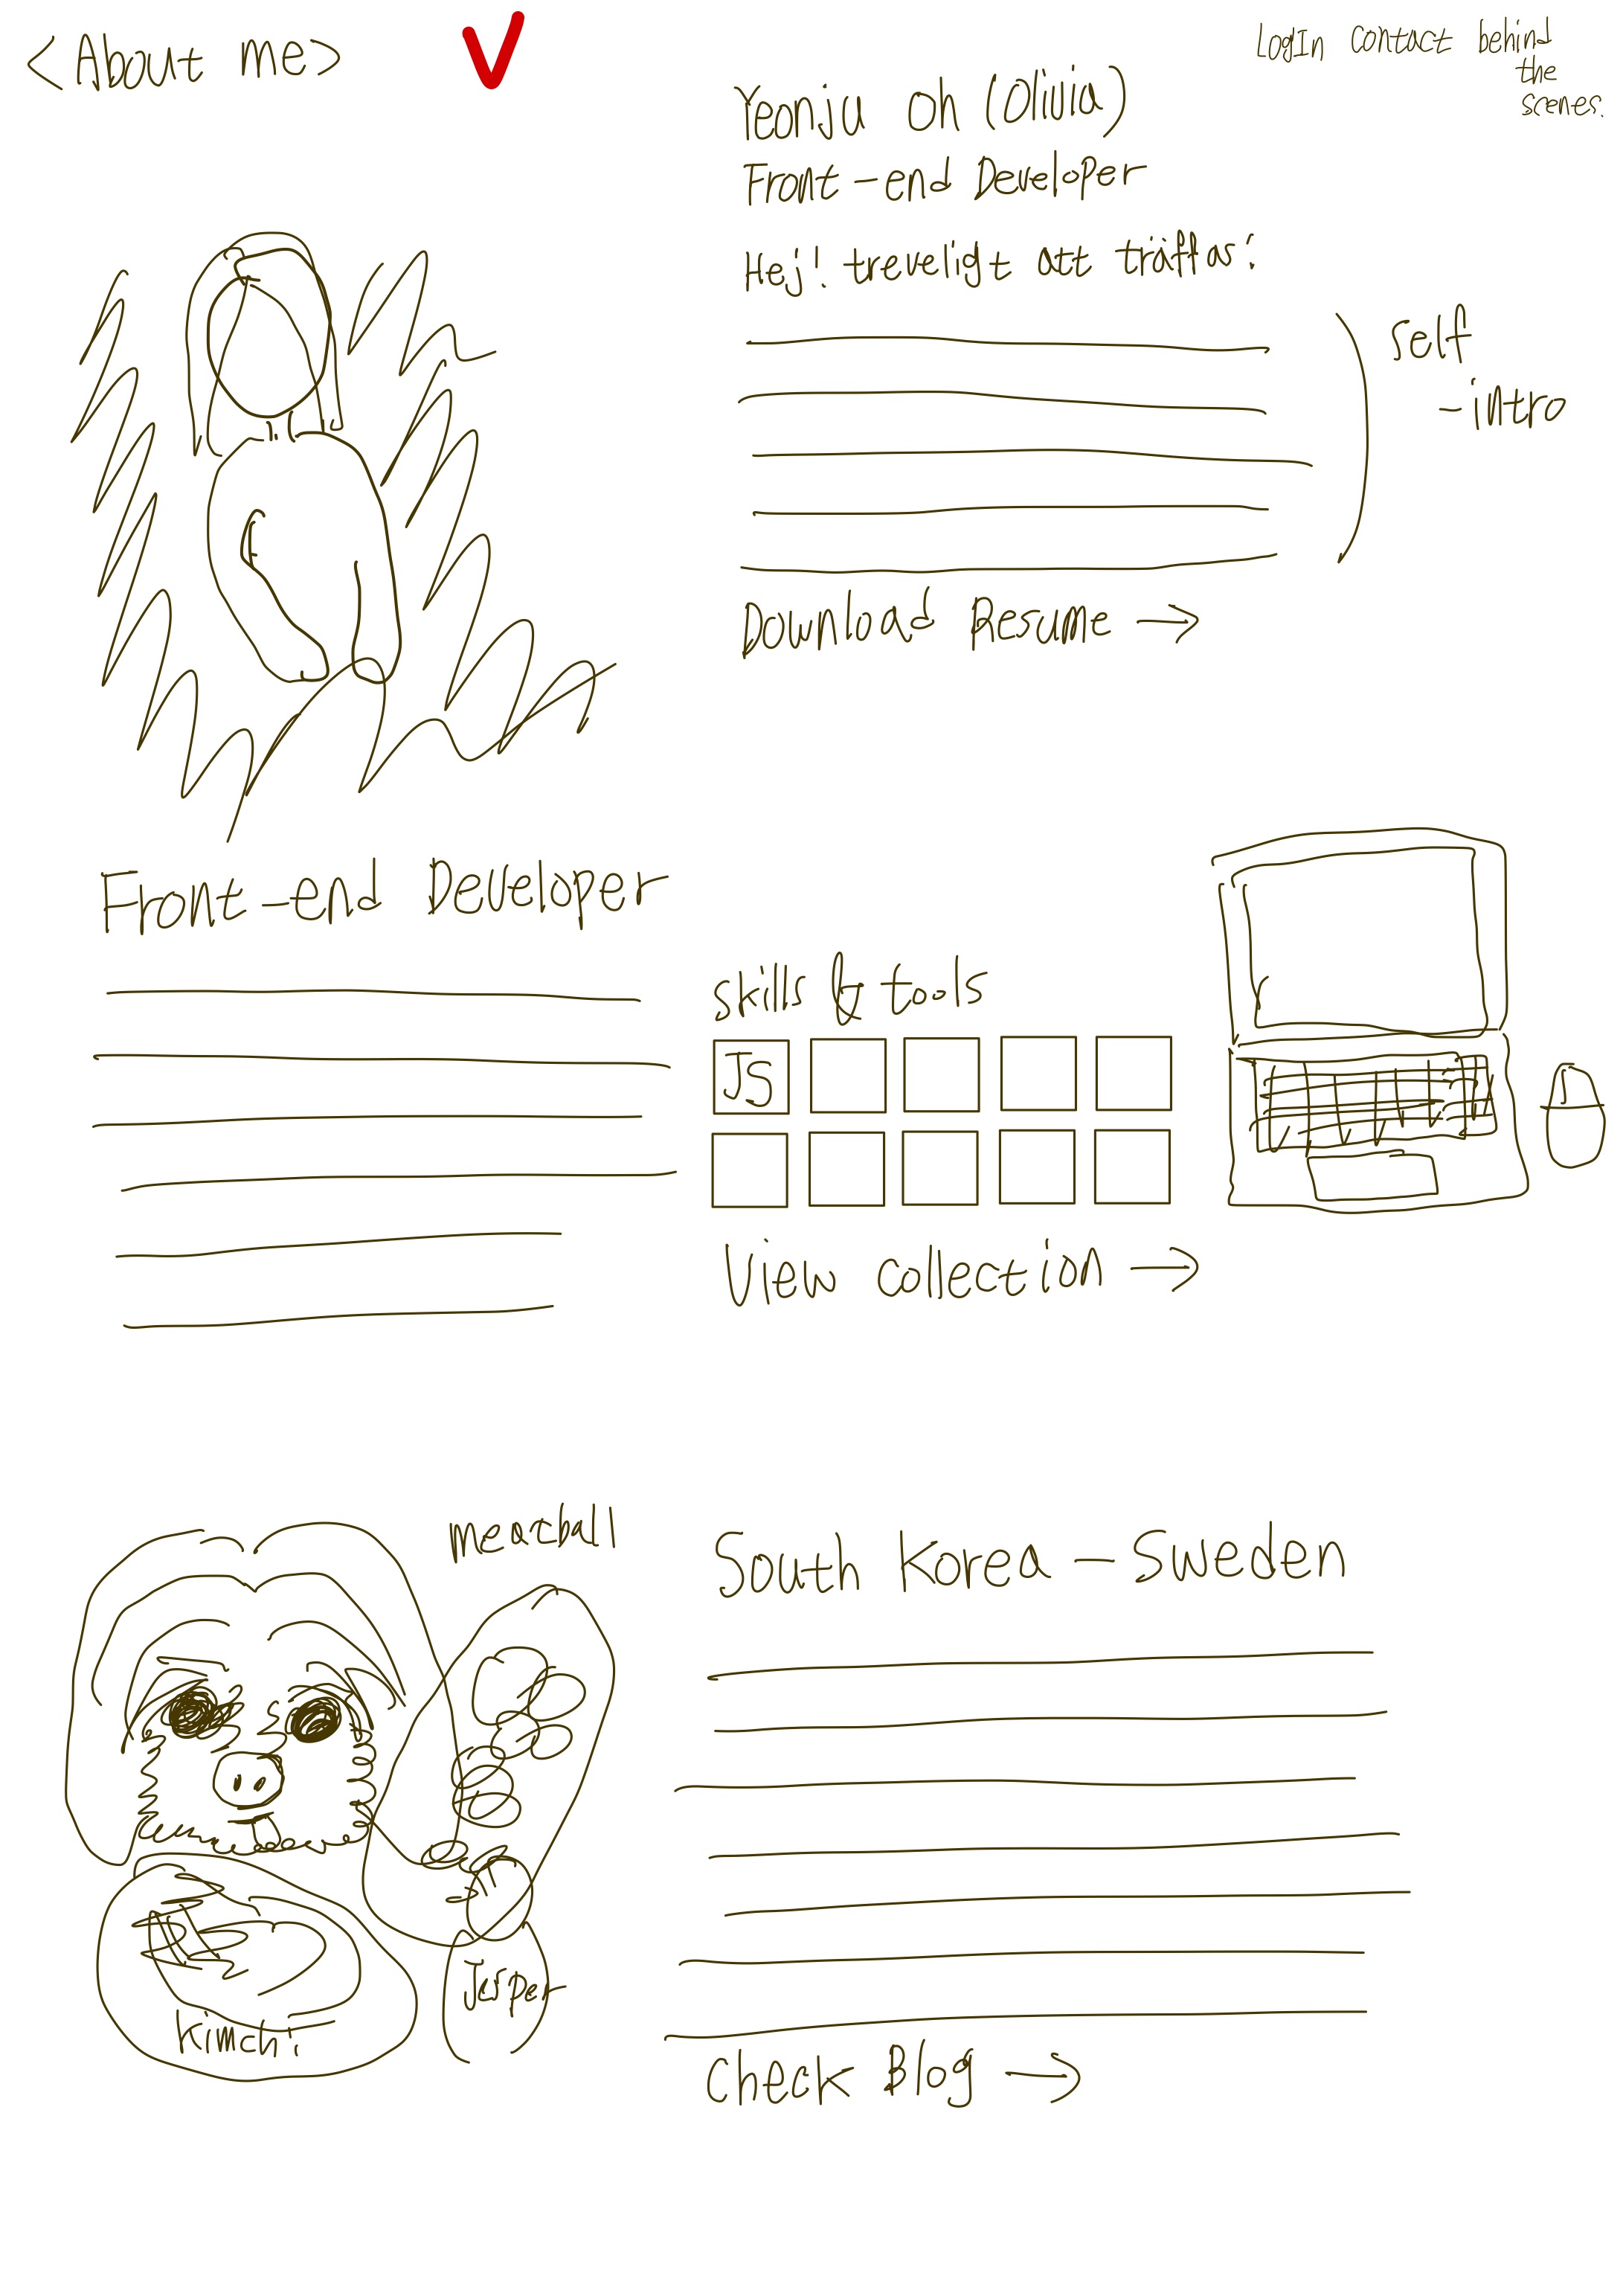 <About me>
LogIn contact behind
the
scenes.
Yeonju Oh (Olivia)
Front-end Developer
Hej! trevligt att träffas!
self
-intro
Download Resume →
Front-end Developer
skills & tools
JS
View collection →
meatball
South Korea - Sweden
Jasper
kimchi
Check Blog →